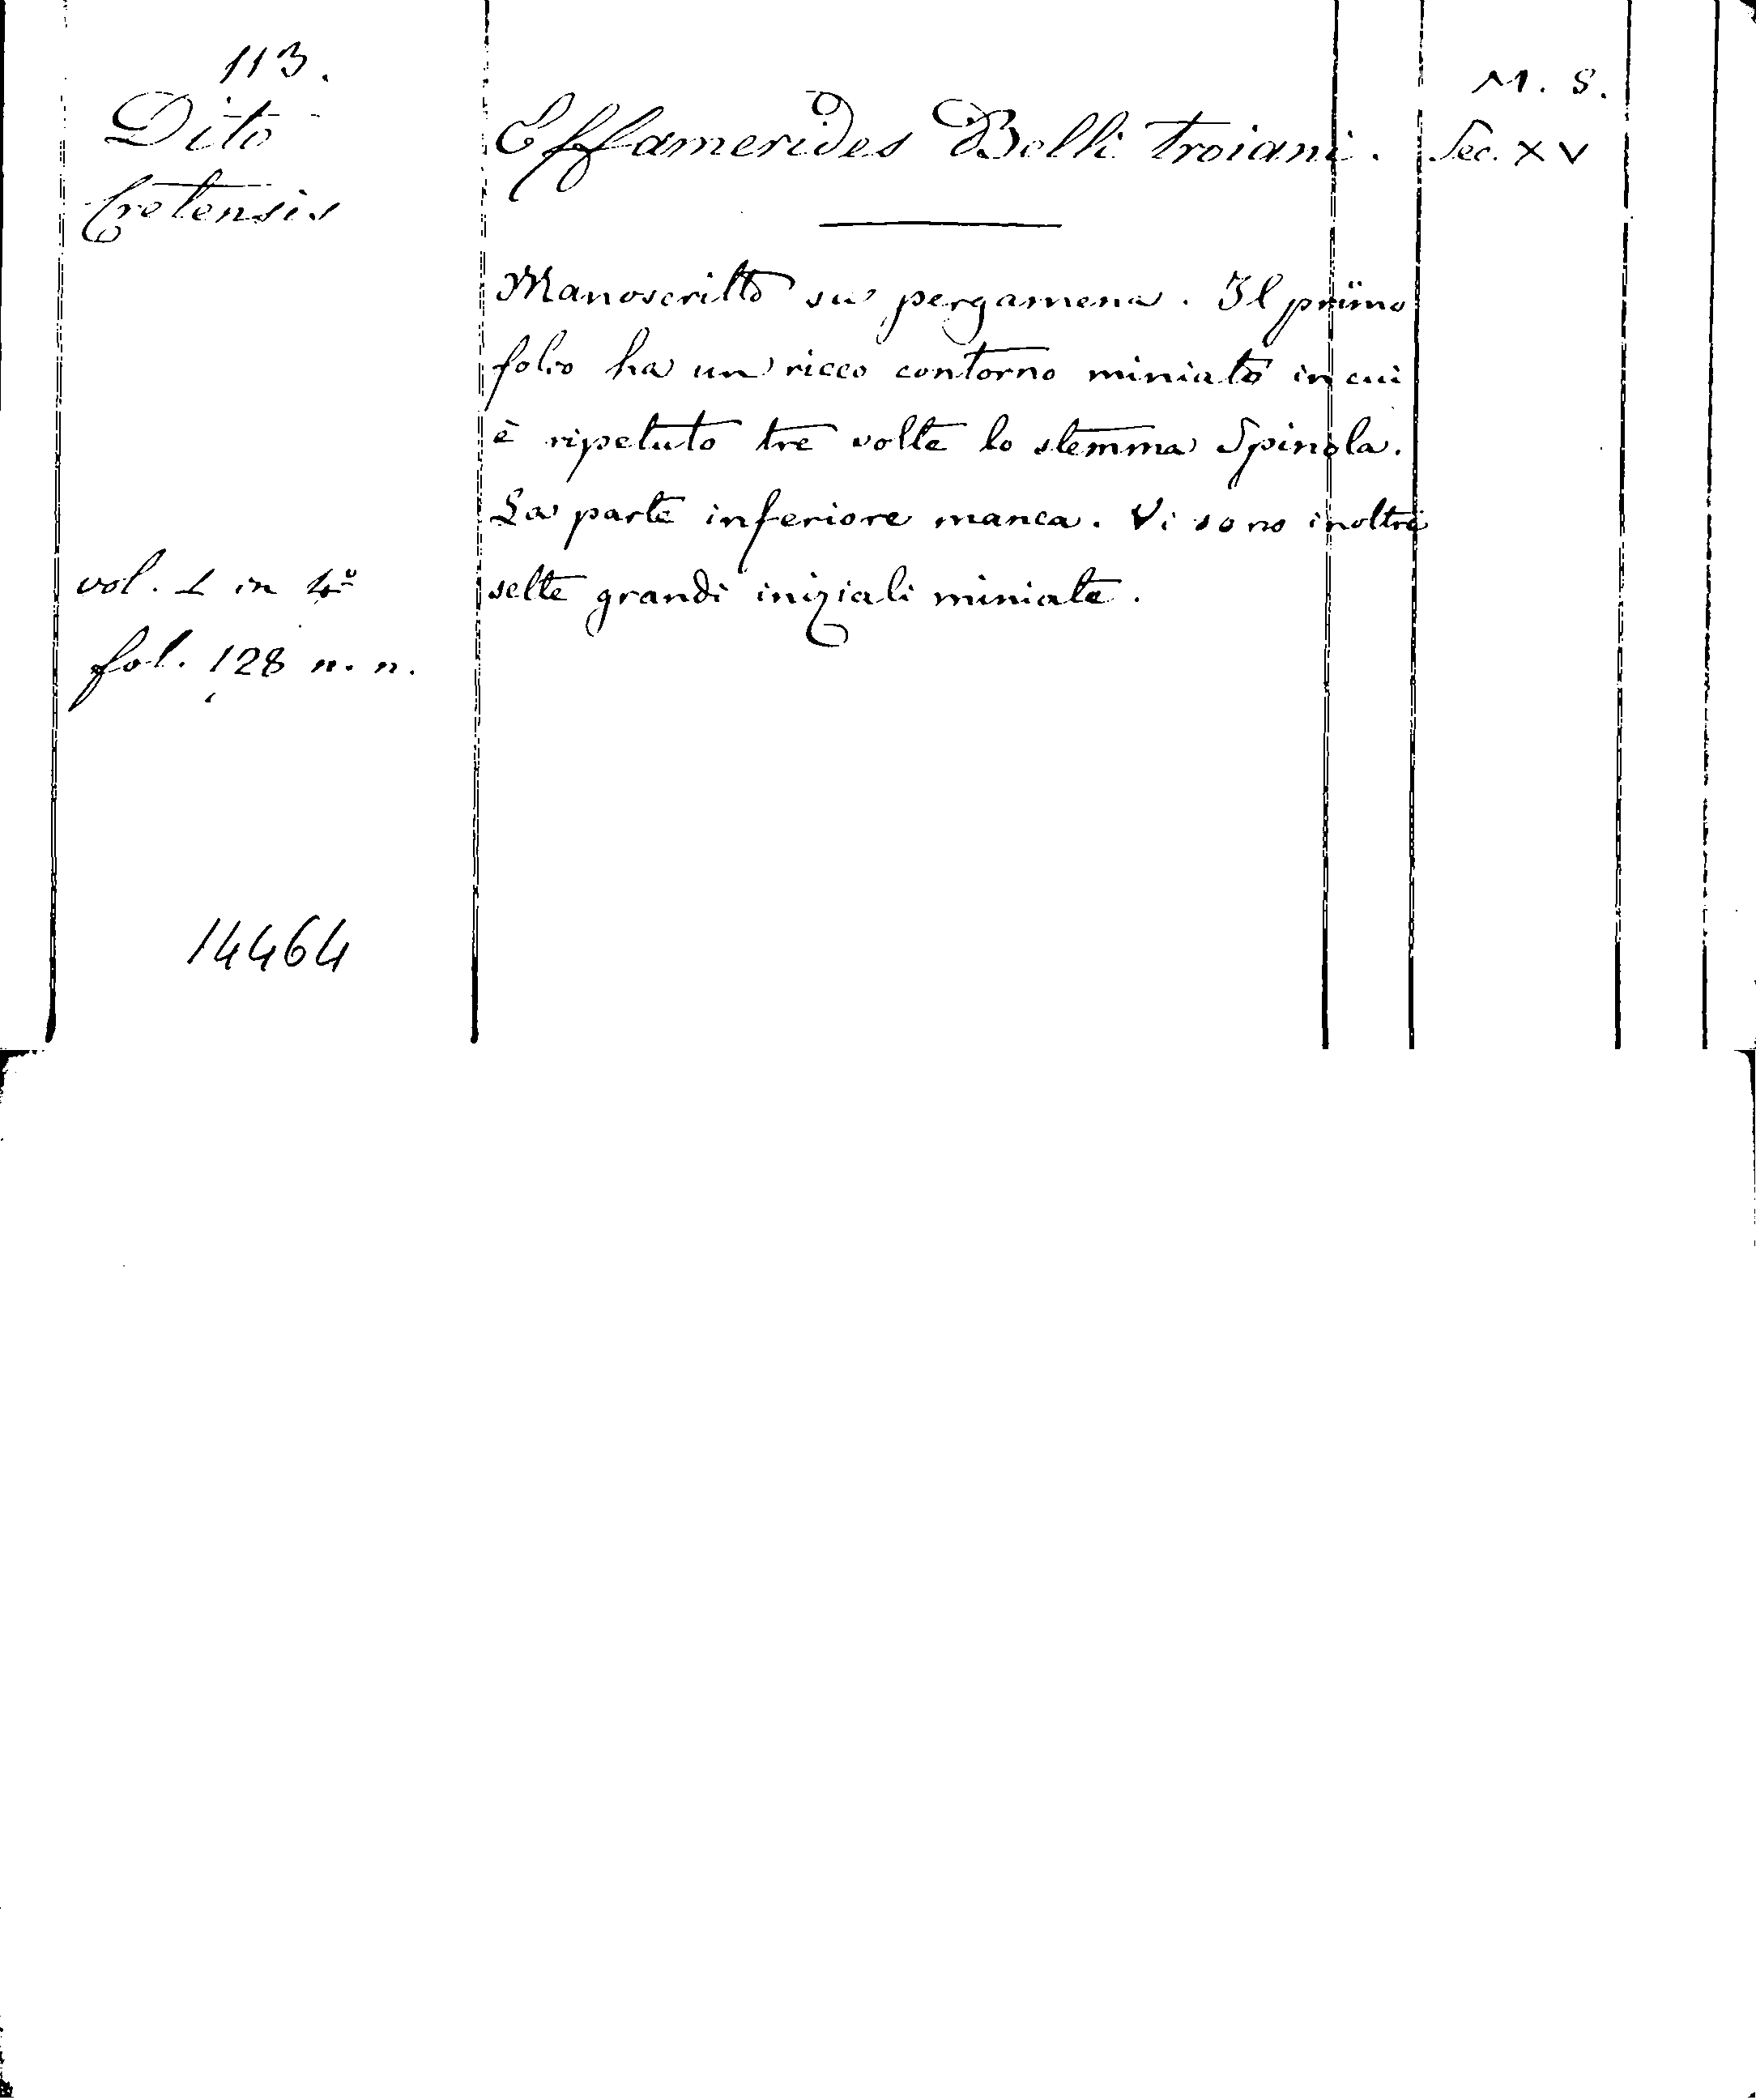 113.
Dito
Cretensis
Effamerides Belli Troiani.
M. S.
Sec. XV
Manoscritto su pergamena. Il primo
folio ha un ricco contorno miniato in cui
è ripetuto tre volte lo stemma Spinola.
La parte inferiore manca. Vi sono inoltre
sette grandi iniziali miniate.
vol. 1 in 4º
fol. 128 n. n.
14464